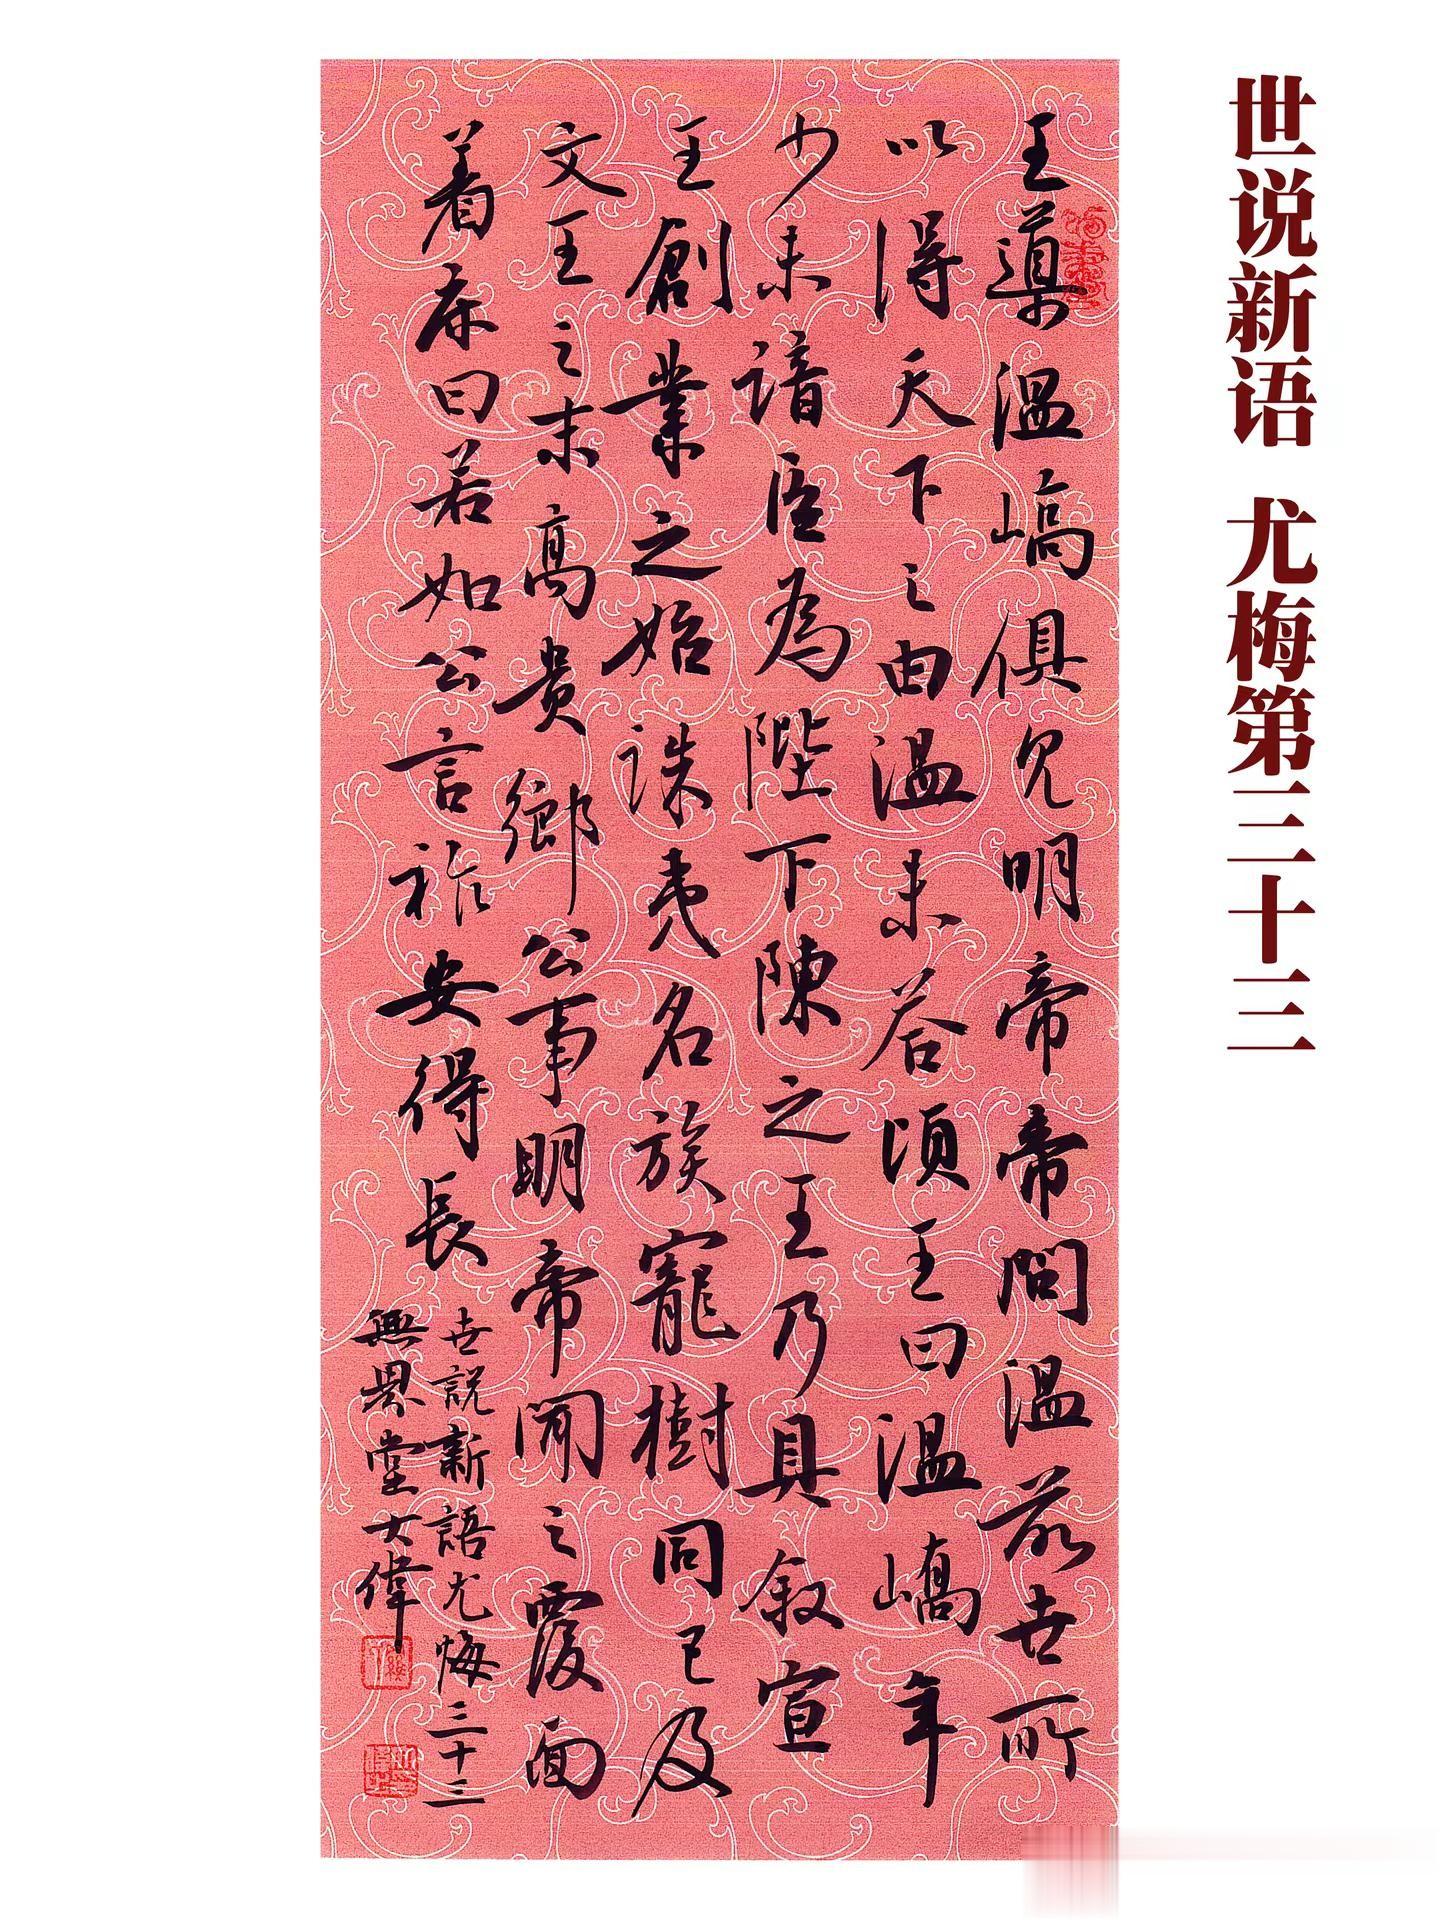 世说新语 尤梅第三十三
王導溫嶠俱見明帝帝問溫前世所
以得天下之由溫未荅頃王曰溫嶠年
少未諳臣為陛下陳之王乃具叙宣
王創業之始誅夷名族寵樹同己及
文王之末高貴鄉公事明帝聞之覆面
着床曰若如公言祚安得長
世說新語尤悔三十三
無畏堂大偉